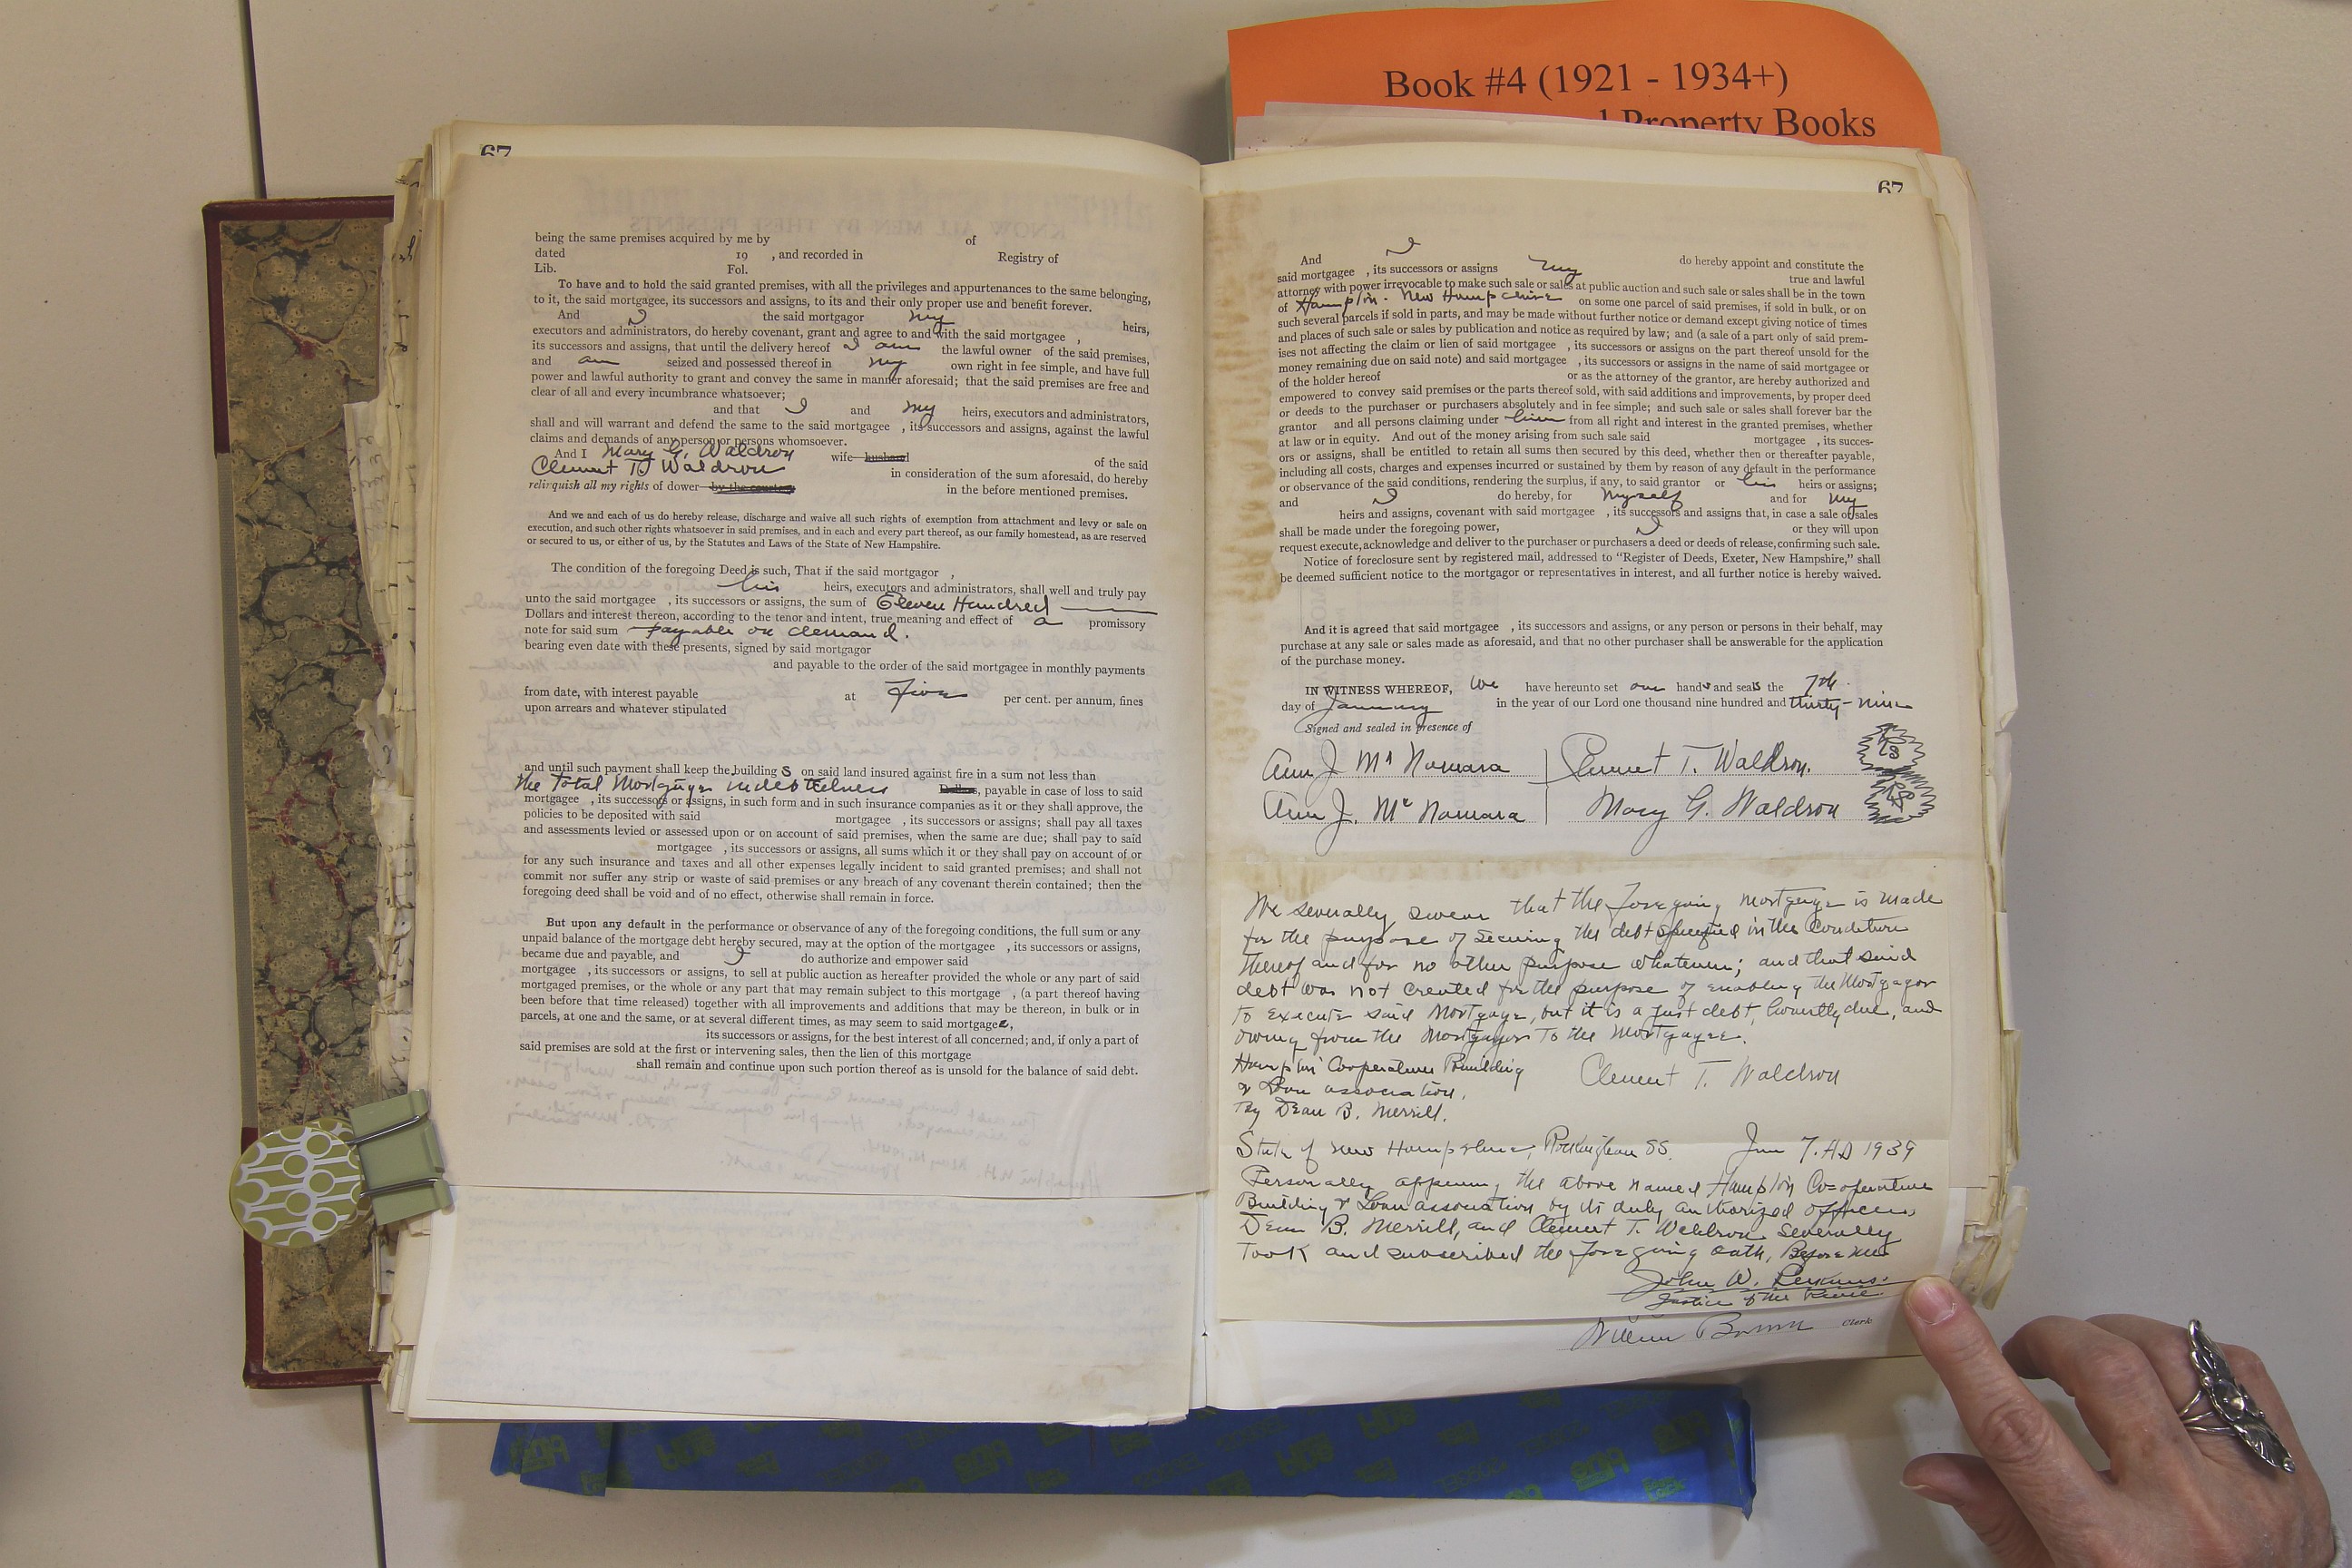 Book #4 (1921 - 1934+)
Property Books
67
being the same premises acquired by me by of
dated 19 , and recorded in Registry of
Lib. Fol.
To have and to hold the said granted premises, with all the privileges and appurtenances to the same belonging,
to it, the said mortgagee, its successors and assigns, to its and their only proper use and benefit forever.
And I the said mortgagor my heirs,
executors and administrators, do hereby covenant, grant and agree to and with the said mortgagee ,
its successors and assigns, that until the delivery hereof I am the lawful owner of the said premises,
and am seized and possessed thereof in my own right in fee simple, and have full
power and lawful authority to grant and convey the same in manner aforesaid; that the said premises are free and
clear of all and every incumbrance whatsoever;
and that I and my heirs, executors and administrators,
shall and will warrant and defend the same to the said mortgagee , its successors and assigns, against the lawful
claims and demands of any person or persons whomsoever.
And I Mary G. Waldron wife husband of the said
Clement T. Waldron in consideration of the sum aforesaid, do hereby
relinquish all my rights of dower by the courtesy in the before mentioned premises.
And we and each of us do hereby release, discharge and waive all such rights of exemption from attachment and levy or sale on
execution, and such other rights whatsoever in said premises, and in each and every part thereof, as our family homestead, as are reserved
or secured to us, or either of us, by the Statutes and Laws of the State of New Hampshire.
The condition of the foregoing Deed is such, That if the said mortgagor ,
his heirs, executors and administrators, shall well and truly pay
unto the said mortgagee , its successors or assigns, the sum of Eleven Hundred
Dollars and interest thereon, according to the tenor and intent, true meaning and effect of a promissory
note for said sum payable on demand.
bearing even date with these presents, signed by said mortgagor
and payable to the order of the said mortgagee in monthly payments
from date, with interest payable at Five per cent. per annum, fines
upon arrears and whatever stipulated
and until such payment shall keep the building s on said land insured against fire in a sum not less than
the Total Mortgage indebtedness Dollars, payable in case of loss to said
mortgagee , its successors or assigns, in such form and in such insurance companies as it or they shall approve, the
policies to be deposited with said mortgagee , its successors or assigns; shall pay all taxes
and assessments levied or assessed upon or on account of said premises, when the same are due; shall pay to said
mortgagee , its successors or assigns, all sums which it or they shall pay on account of or
for any such insurance and taxes and all other expenses legally incident to said granted premises; and shall not
commit nor suffer any strip or waste of said premises or any breach of any covenant therein contained; then the
foregoing deed shall be void and of no effect, otherwise shall remain in force.
But upon any default in the performance or observance of any of the foregoing conditions, the full sum or any
unpaid balance of the mortgage debt hereby secured, may at the option of the mortgagee , its successors or assigns,
became due and payable, and I do authorize and empower said
mortgagee , its successors or assigns, to sell at public auction as hereafter provided the whole or any part of said
mortgaged premises, or the whole or any part that may remain subject to this mortgage , (a part thereof having
been before that time released) together with all improvements and additions that may be thereon, in bulk or in
parcels, at one and the same, or at several different times, as may seem to said mortgagee,
its successors or assigns, for the best interest of all concerned; and, if only a part of
said premises are sold at the first or intervening sales, then the lien of this mortgage
shall remain and continue upon such portion thereof as is unsold for the balance of said debt.
67
And I do hereby appoint and constitute the
said mortgagee , its successors or assigns my true and lawful
attorney with power irrevocable to make such sale or sales at public auction and such sale or sales shall be in the town
of Hampton - New Hampshire on some one parcel of said premises, if sold in bulk, or on
such several parcels if sold in parts, and may be made without further notice or demand except giving notice of times
and places of such sale or sales by publication and notice as required by law; and (a sale of a part only of said prem-
ises not affecting the claim or lien of said mortgagee , its successors or assigns on the part thereof unsold for the
money remaining due on said note) and said mortgagee , its successors or assigns in the name of said mortgagee or
of the holder hereof or as the attorney of the grantor, are hereby authorized and
empowered to convey said premises or the parts thereof sold, with said additions and improvements, by proper deed
or deeds to the purchaser or purchasers absolutely and in fee simple; and such sale or sales shall forever bar the
grantor and all persons claiming under him from all right and interest in the granted premises, whether
at law or in equity. And out of the money arising from such sale said mortgagee , its succes-
ors or assigns, shall be entitled to retain all sums then secured by this deed, whether then or thereafter payable,
including all costs, charges and expenses incurred or sustained by them by reason of any default in the performance
or observance of the said conditions, rendering the surplus, if any, to said grantor or his heirs or assigns;
and I do hereby, for myself and for my
heirs and assigns, covenant with said mortgagee , its successors and assigns that, in case a sale or sales
shall be made under the foregoing power, I or they will upon
request execute, acknowledge and deliver to the purchaser or purchasers a deed or deeds of release, confirming such sale.
Notice of foreclosure sent by registered mail, addressed to "Register of Deeds, Exeter, New Hampshire," shall
be deemed sufficient notice to the mortgagor or representatives in interest, and all further notice is hereby waived.
And it is agreed that said mortgagee , its successors and assigns, or any person or persons in their behalf, may
purchase at any sale or sales made as aforesaid, and that no other purchaser shall be answerable for the application
of the purchase money.
IN WITNESS WHEREOF, we have hereunto set our hands and seals the 7th
day of January in the year of our Lord one thousand nine hundred and thirty-nine
Signed and sealed in presence of
Ann J. McNamara Clement T. Waldron. LS
Ann J. McNamara Mary G. Waldron LS
We severally swear that the foregoing mortgage is made
for the purpose of securing the debt specified in the Condition
thereof and for no other purpose whatever; and that said
debt was not created for the purpose of enabling the Mortgagor
to execute said Mortgage, but it is a just debt, honestly due, and
owing from the Mortgagor To the Mortgagee.
Hampton Cooperative Building
& Loan association, Clement T. Waldron
By Dean B. Merrill.
State of New Hampshire, Rockingham SS. Jan 7. AD 1939
Personally appearing the above named Hampton Co-operative
Building & Loan association by its duly authorized officer,
Dean B. Merrill, and Clement T. Waldron severally
Took and subscribed the foregoing oath, Before me
John W. Perkins.
Justice of the Peace.
William Brown Clerk